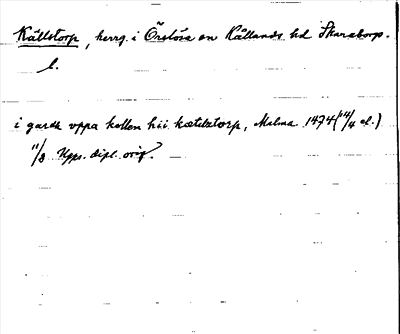 Källstorp, herrg. i Örslösa sn Kållands hd Skaraborgs
l.
i garde vppa kollen hii kætilztorp, Malma 1474 (14/4 el.)
11/8 Upps. dipl. orig.